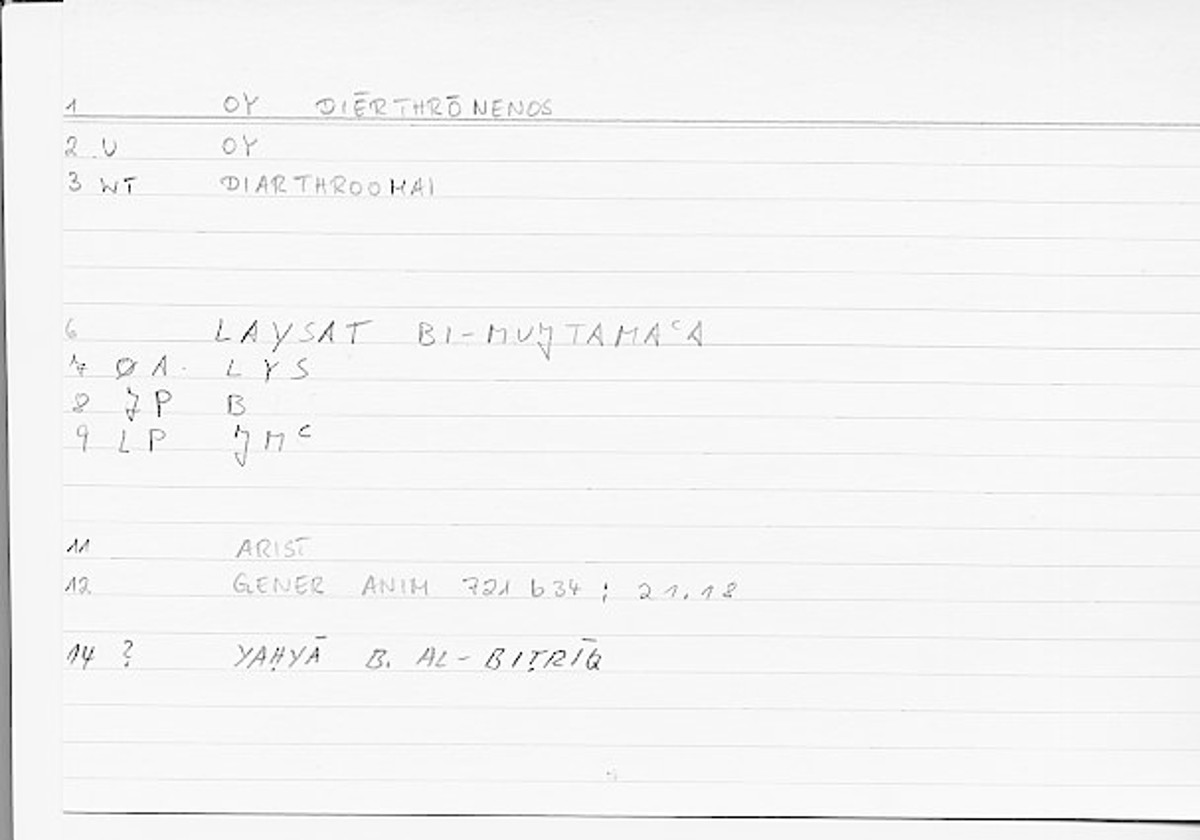 1 OY DIĒRTHRŌNENOS
2 U OY
3 WT DIARTHROOMAI
6 LAYSAT BI-MUJTAMAᶜA
7 ØA. LYS
8 JP B
9 LP JMᶜ
11 ARIST
12 GENER ANIM 721 b34 ; 21.18
14 ? YAḤYĀ B. AL-BIṬRĪQ